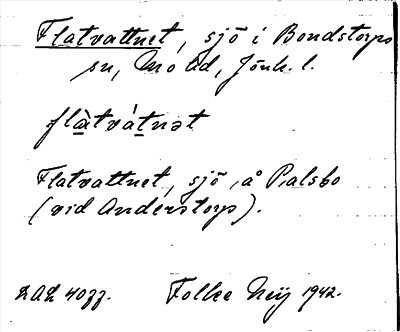 Flatvattnet, sjö i Bondstorps
sn, Mo hd, Jönk. l.
flàtvátnət
Flatvattnet, sjö, å Palsbo
(vid Anderstorp).
Folke Neij 1942.